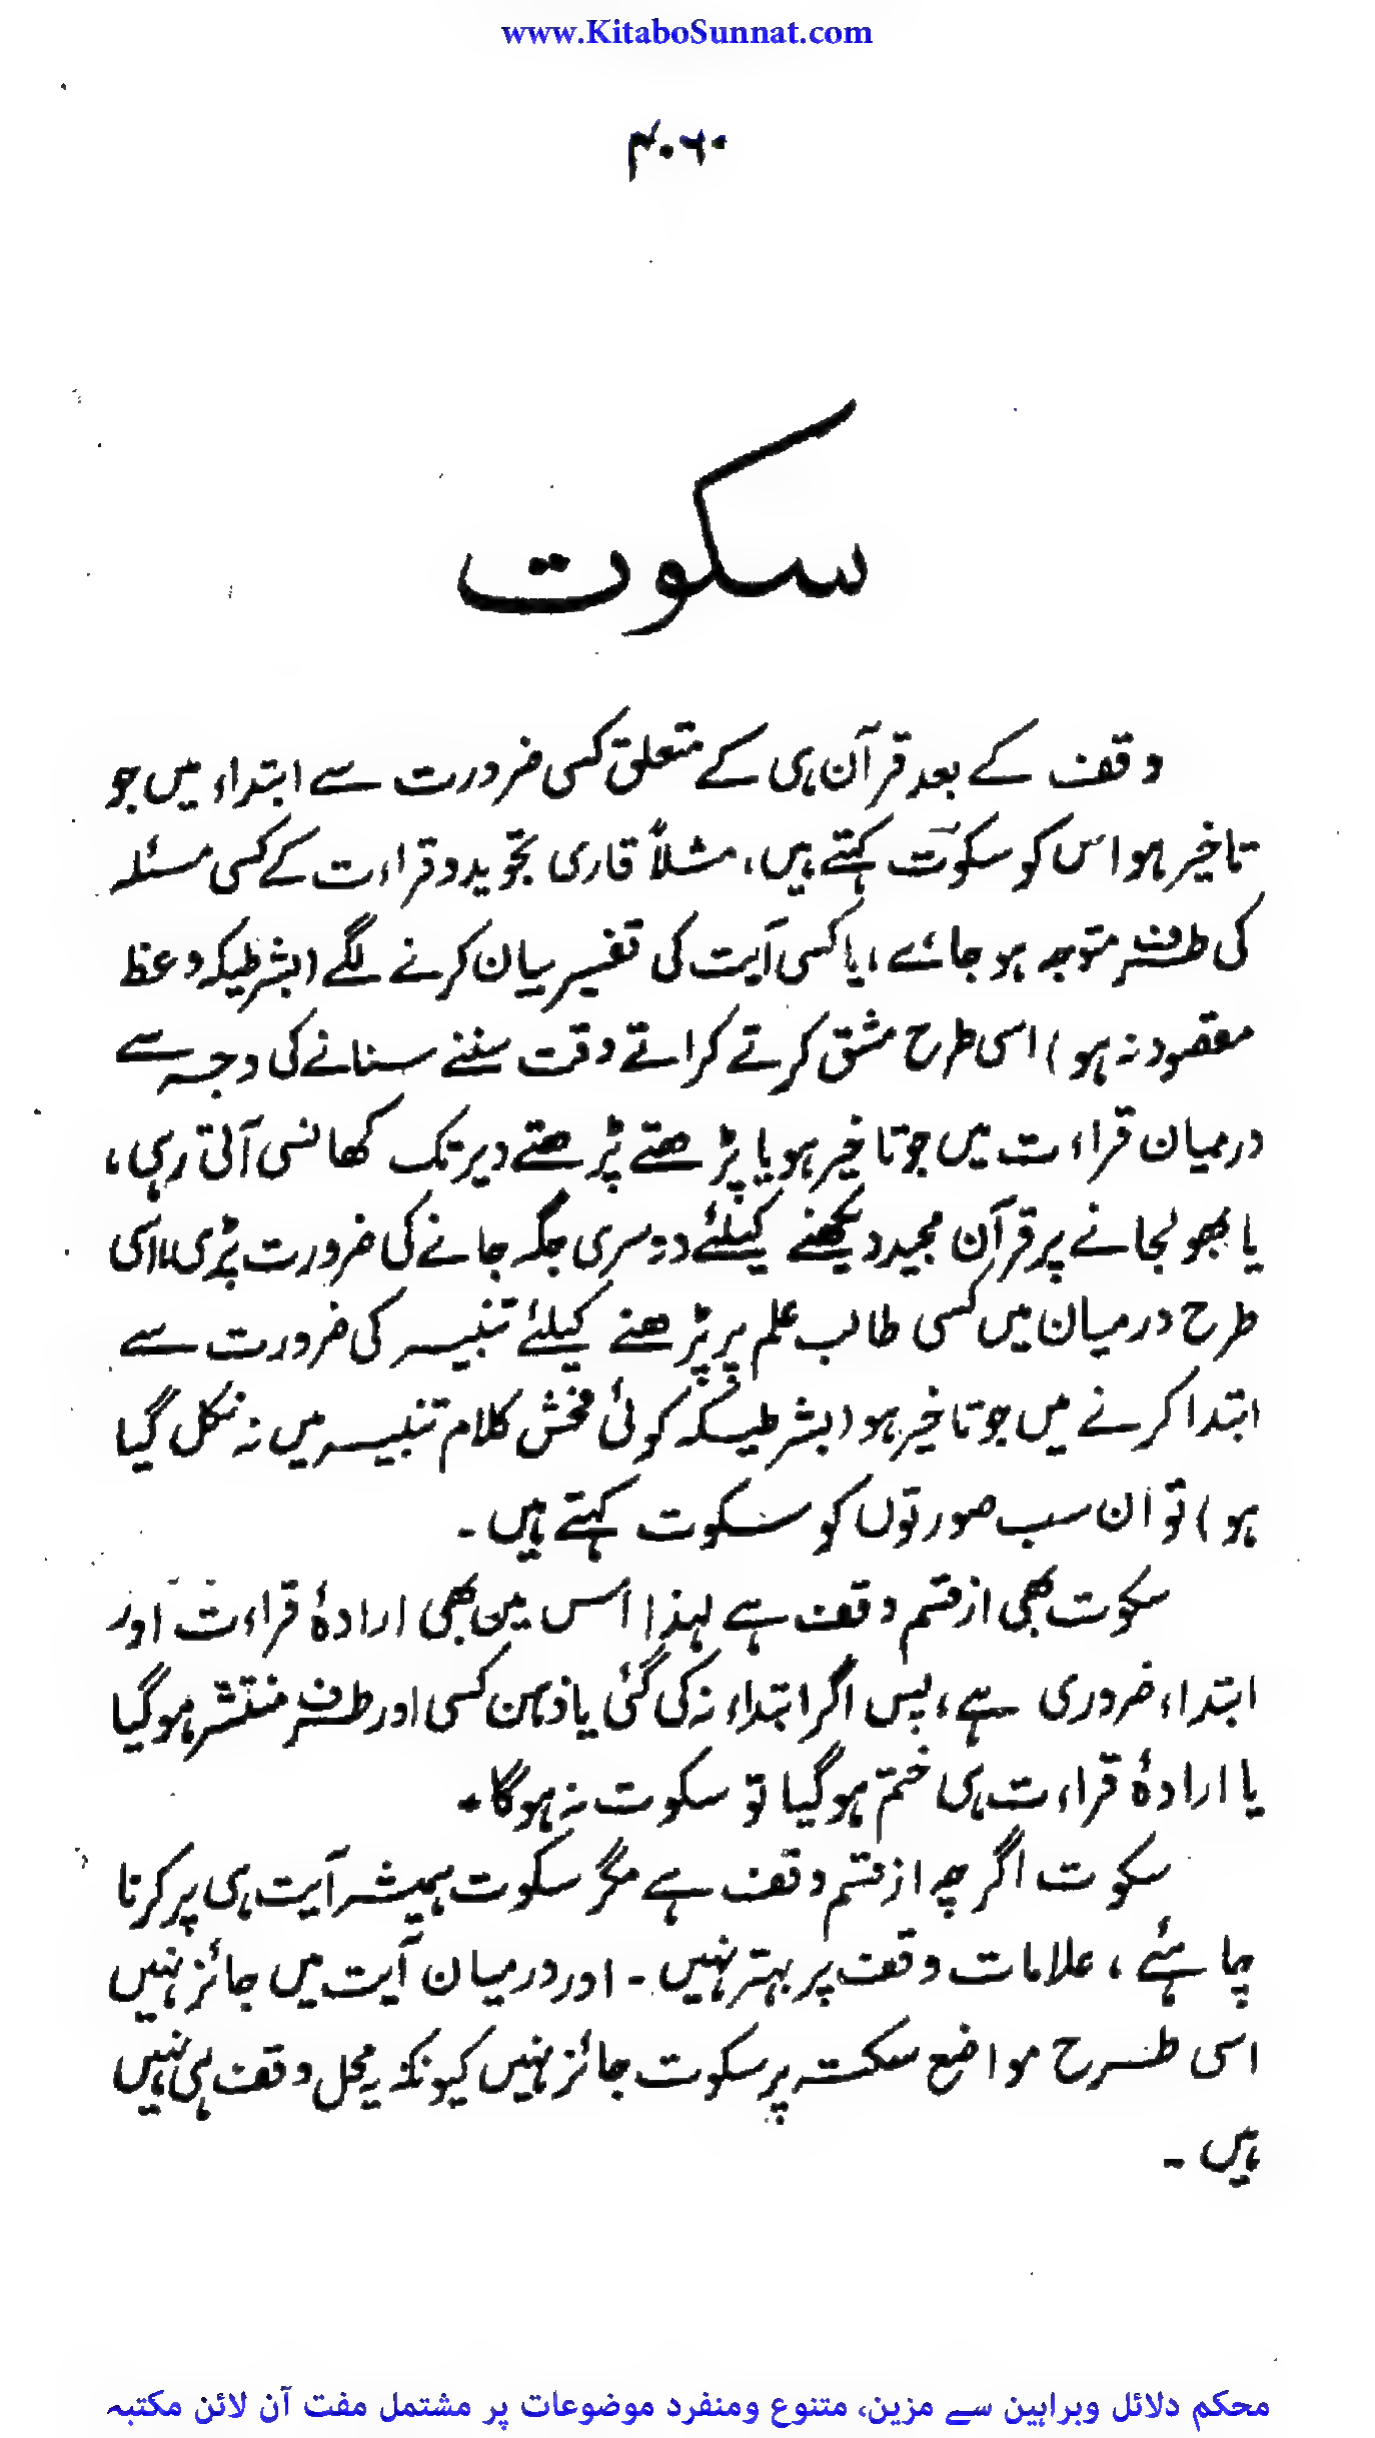 www.KitaboSunnat.com
سکوت
وقف کے بعد قرآن ہی کے متعلق کسی ضرورت سے ابتداء میں جو
تاخیر ہو اس کو سکوت کہتے ہیں، مثلاً قاری تجوید و قراءت کے کسی مسئلہ
کی طرف متوجہ ہو جائے، یا کسی آیت کی تفسیر بیان کرنے لگے (بشرطیکہ وعظ
مقصود نہ ہو) اسی طرح مشق کرتے کراتے وقت سننے سنانے کی وجہ سے
درمیان قراءت میں جو تاخیر ہو یا پڑھتے پڑھتے دیر تک کھانسی آتی رہی،
یا بھولجانے پر قرآن مجید دیکھنے کیلئے دوسری جگہ جانے کی ضرورت پڑی، اسی
طرح درمیان میں کسی طالب علم پر پڑھنے کیلئے تنبیہ کی ضرورت سے
ابتدا کرنے میں جو تاخیر ہو (بشرطیکہ کوئی فحش کلام تنبیہ میں نہ نکل گیا
ہو) تو ان سب صورتوں کو سکوت کہتے ہیں ۔
سکوت بھی از قسم وقف ہے لہذا اس میں بھی ارادۂ قراءت اور
ابتداء ضروری ہے، پس اگر ابتداء نہ کی گئی یا ذہن کسی اور طرف منتشر ہو گیا
یا ارادۂ قراءت ہی ختم ہو گیا تو سکوت نہ ہوگا۔
سکوت اگرچہ از قسم وقف ہے مگر سکوت ہمیشہ آیت ہی پر کرنا
چاہئے، علامات وقف پر بہتر نہیں ۔ اور درمیان آیت میں جائز نہیں
اسی طرح مواضع سکتہ پر سکوت جائز نہیں کیونکہ یہ محل وقف ہی نہیں
ہیں ۔
محکم دلائل وبراہین سے مزین، متنوع ومنفرد موضوعات پر مشتمل مفت آن لائن مکتبہ